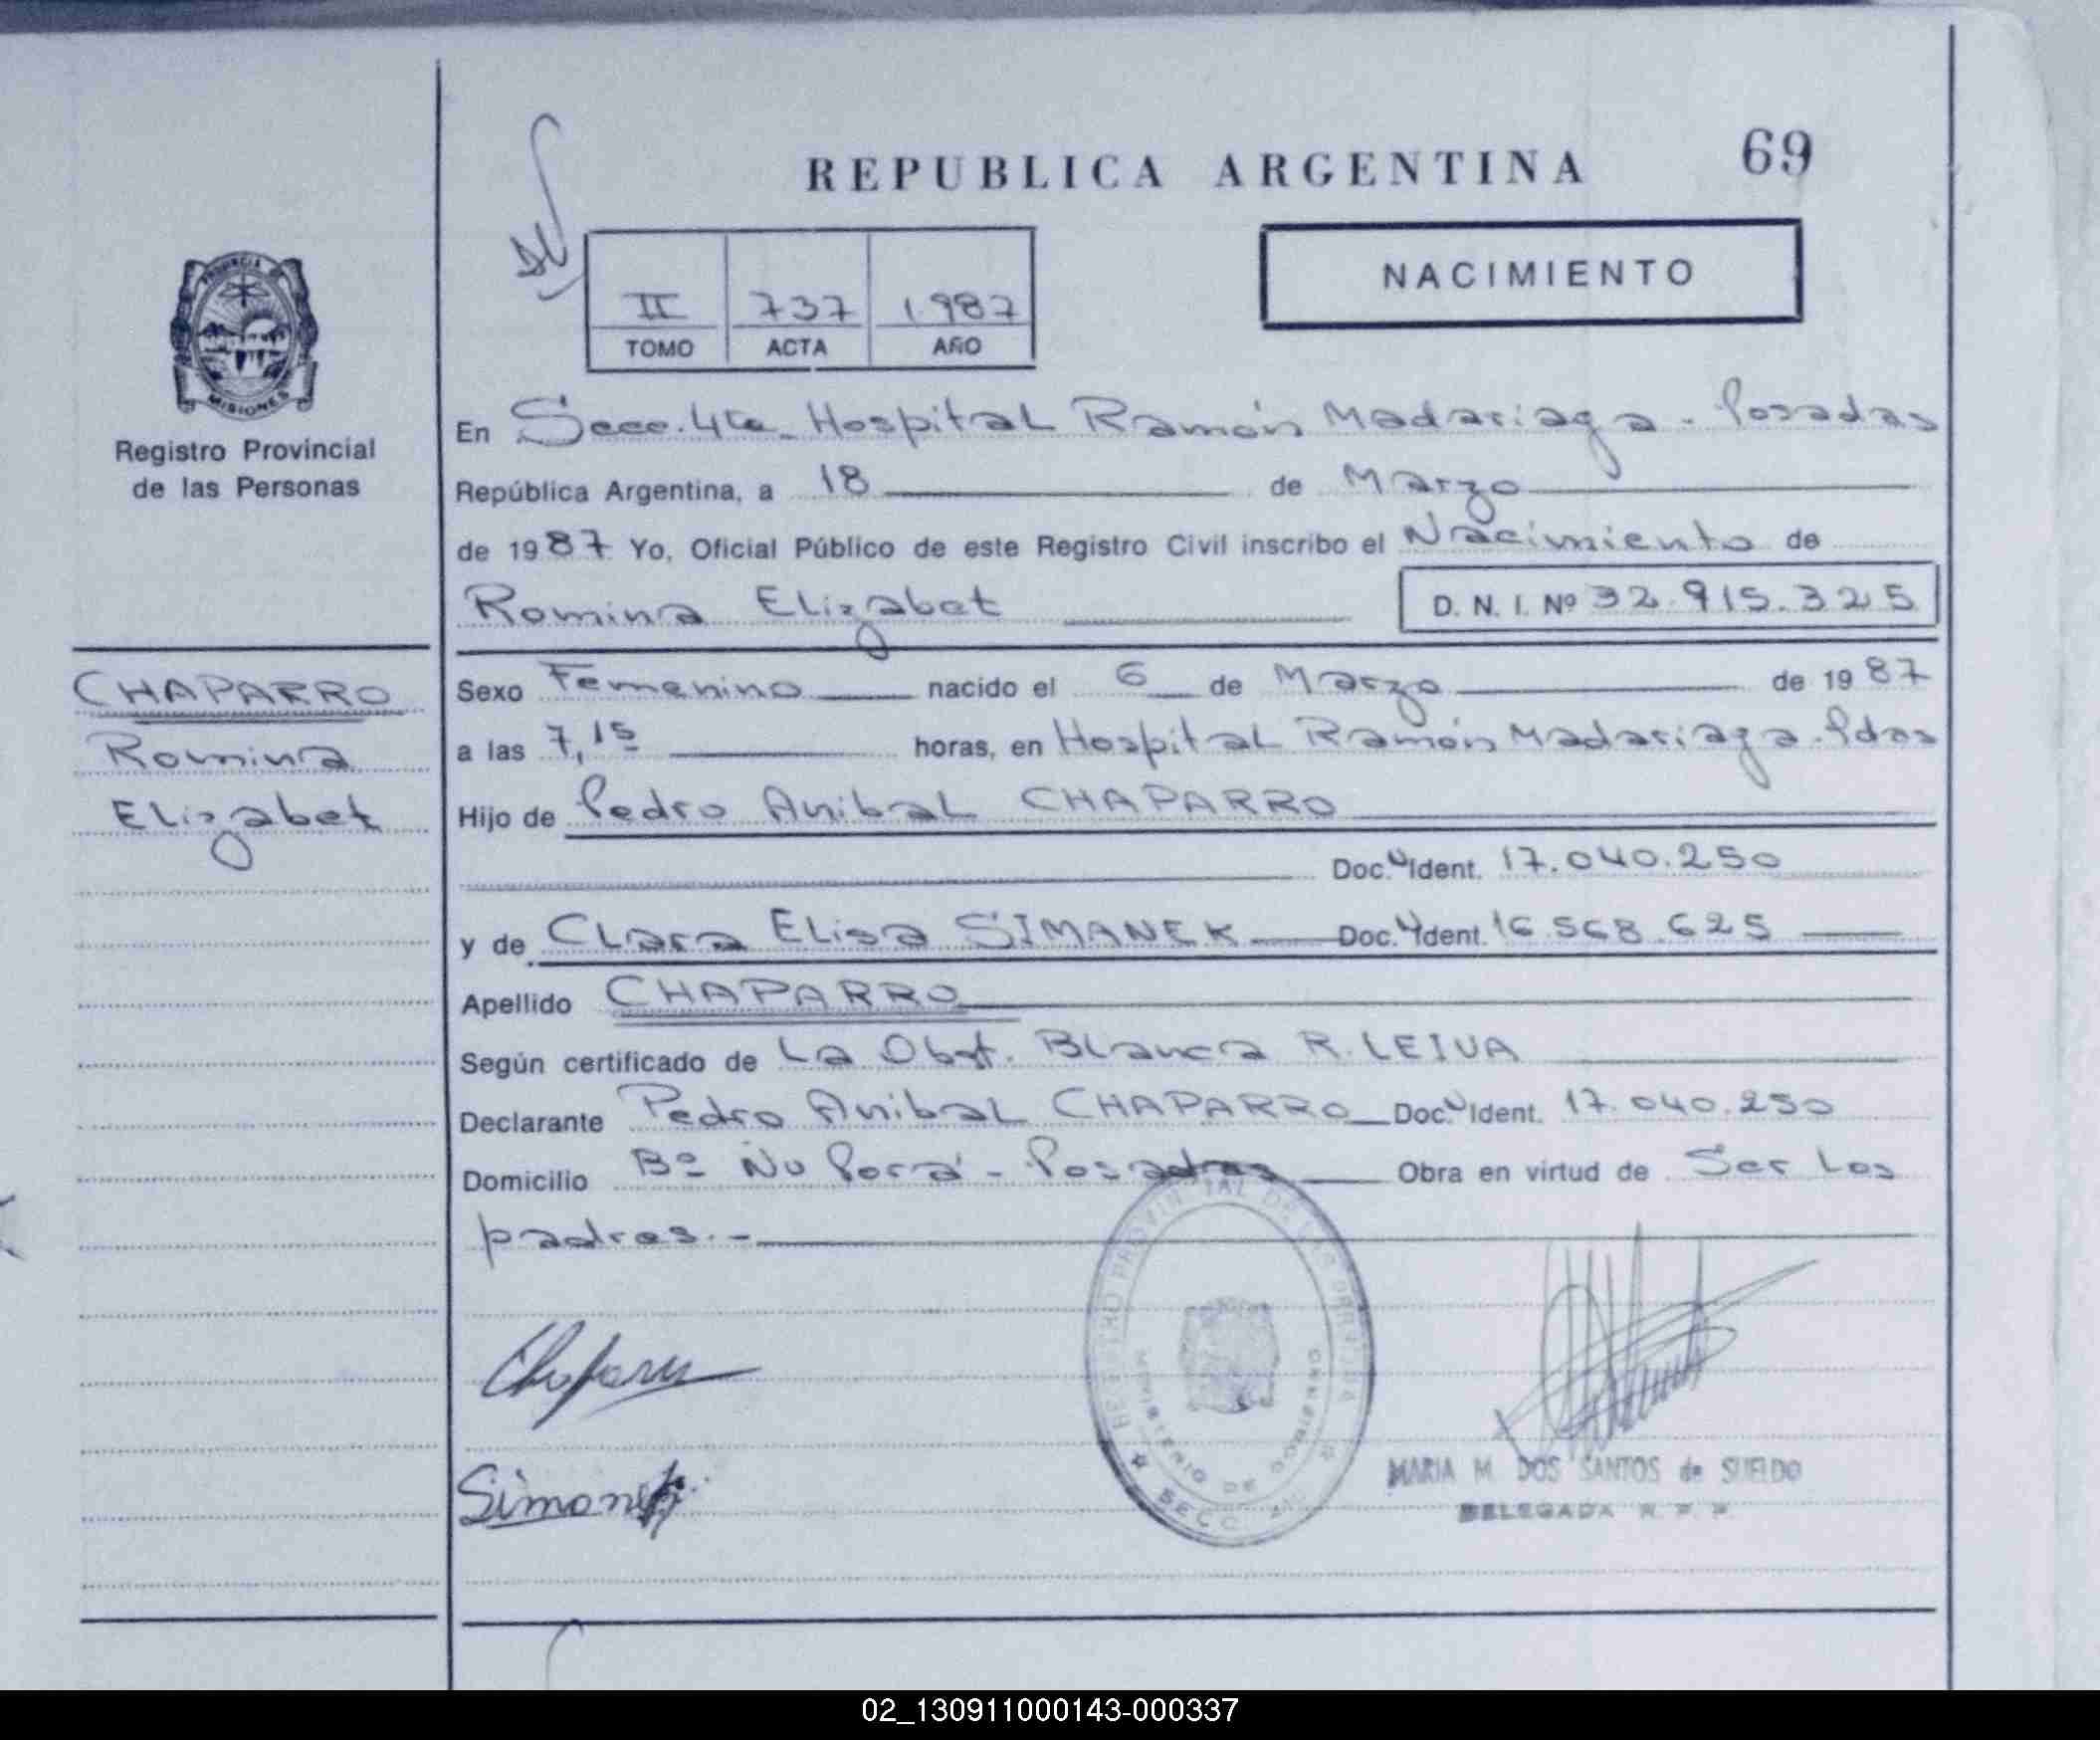 REPUBLICA ARGENTINA
69
II 737 1.987
TOMO ACTA AÑO
NACIMIENTO
PROVINCIA DE
MISIONES
Registro Provincial
de las Personas
CHAPARRO
Romina
Elizabet
En Secc. 4ta. Hospital Ramón Madariaga - Posadas
República Argentina, a 18 de Marzo
de 1987 Yo, Oficial Público de este Registro Civil inscribo el Nacimiento de
Romina Elizabet D. N. I. Nº 32.915.325
Sexo Femenino nacido el 6 de Marzo de 1987
a las 7,15 horas, en Hospital Ramón Madariaga. Pdas
Hijo de Pedro Anibal CHAPARRO
Doc. Ident. 17.040.250
y de Clara Elisa SIMANEK Doc. Ident. 16.568.625
Apellido CHAPARRO
Según certificado de La Obst. Blanca R. LEIVA
Declarante Pedro Anibal CHAPARRO Doc. Ident. 17.040.250
Domicilio Bº Ñu Porá - Posadas Obra en virtud de Ser Los
padres.-
REGISTRO PROVINCIAL DE LAS PERSONAS
MINISTERIO DE GOBIERNO
SECC.
Chaparro
Simanek
MARIA M. DOS SANTOS de SUELDO
DELEGADA R. P. P.
02_130911000143-000337